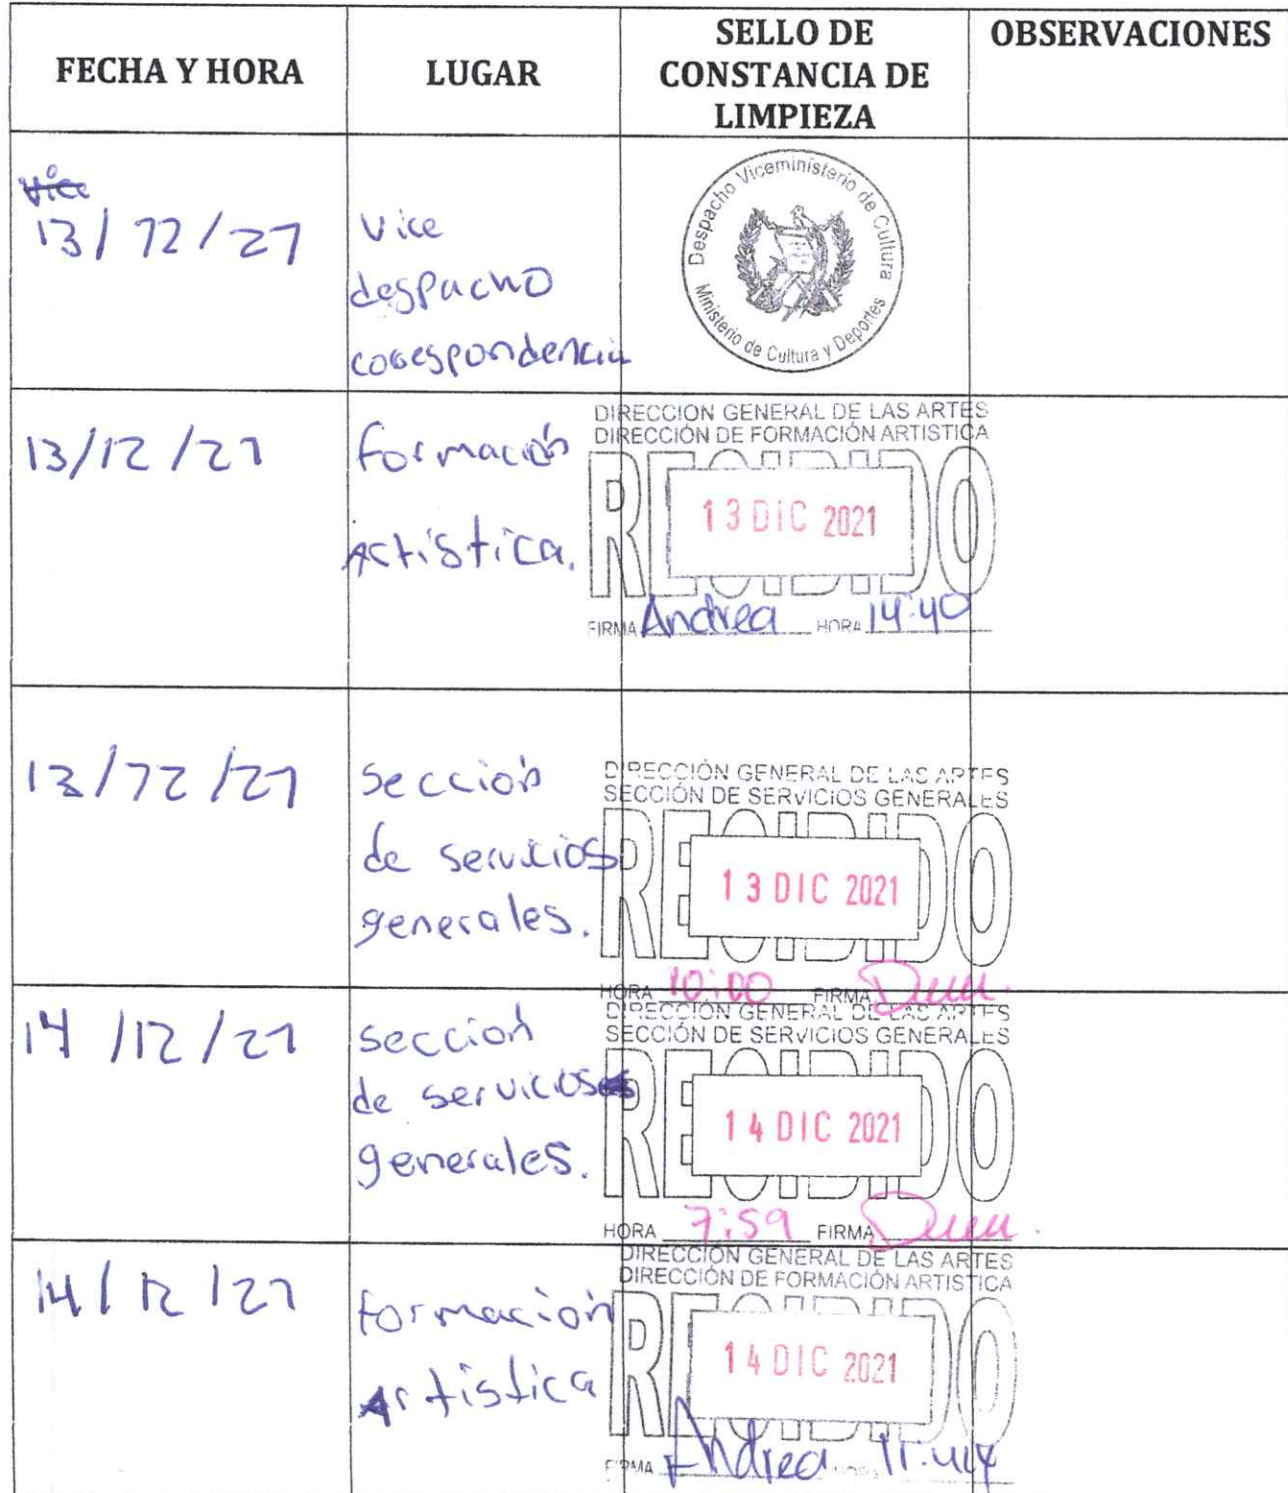 FECHA Y HORA
LUGAR
SELLO DE
CONSTANCIA DE
LIMPIEZA
OBSERVACIONES
Vice
13/12/21
Vice
despacho
correspondencia
Despacho Viceministerio de Cultura
Ministerio de Cultura y Deportes
13/12/21
formación
Artistica.
DIRECCION GENERAL DE LAS ARTES
DIRECCIÓN DE FORMACIÓN ARTISTICA
RECIBIDO
13 DIC 2021
FIRMA Andrea HORA 14:40
13/12/21
Sección
de servicios
generales.
DIRECCIÓN GENERAL DE LAS ARTES
SECCIÓN DE SERVICIOS GENERALES
RECIBIDO
13 DIC 2021
HORA 10:00 FIRMA
14/12/21
sección
de servicios
generales.
DIRECCIÓN GENERAL DE LAS ARTES
SECCIÓN DE SERVICIOS GENERALES
RECIBIDO
14 DIC 2021
HORA 7:59 FIRMA
14/12/21
formación
Artistica
DIRECCIÓN GENERAL DE LAS ARTES
DIRECCIÓN DE FORMACIÓN ARTISTICA
RECIBIDO
14 DIC 2021
FIRMA Andrea HORA